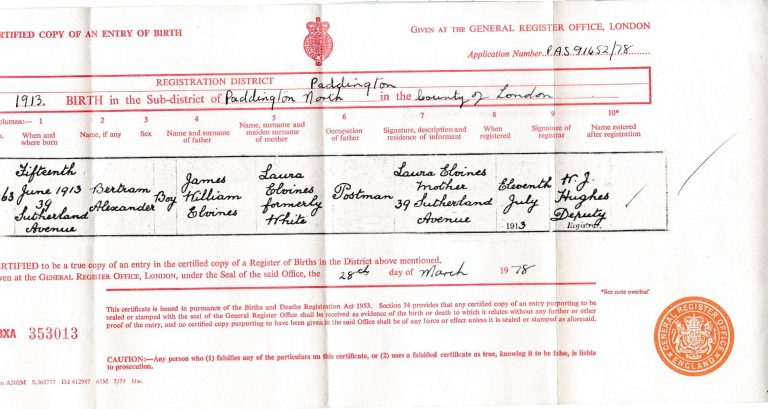 CERTIFIED COPY OF AN ENTRY OF BIRTH
GIVEN AT THE GENERAL REGISTER OFFICE, LONDON
Application Number PAS 91452/78
REGISTRATION DISTRICT Paddington
1913. BIRTH in the Sub-district of Paddington North in the County of London
Columns:— 1 2 3 4 5 6 7 8 9 10*
No. When and where born Name, if any Sex Name and surname of father Name, surname and maiden surname of mother Occupation of father Signature, description and residence of informant When registered Signature of registrar Name entered after registration
63 Fifteenth June 1913 39 Sutherland Avenue Bertram Alexander Boy James William Elvines Laura Elvines formerly White Postman Laura Elvines Mother 39 Sutherland Avenue Eleventh July 1913 W. J. Hughes Deputy Registrar.
CERTIFIED to be a true copy of an entry in the certified copy of a Register of Births in the District above mentioned.
Given at the GENERAL REGISTER OFFICE, LONDON, under the Seal of the said Office, the 28th day of March 1978
*See note overleaf
This certificate is issued in pursuance of the Births and Deaths Registration Act 1953. Section 34 provides that any certified copy of an entry purporting to be
sealed or stamped with the seal of the General Register Office shall be received as evidence of the birth or death to which it relates without any further or other
proof of the entry, and no certified copy purporting to have been given in the said Office shall be of any force or effect unless it is sealed or stamped as aforesaid.
BXA 353013
CAUTION:—Any person who (1) falsifies any of the particulars on this certificate, or (2) uses a falsified certificate as true, knowing it to be false, is liable
to prosecution.
A502M S.365777 Dd 412987 65M 7/77 Hw.
GENERAL REGISTER OFFICE
ENGLAND